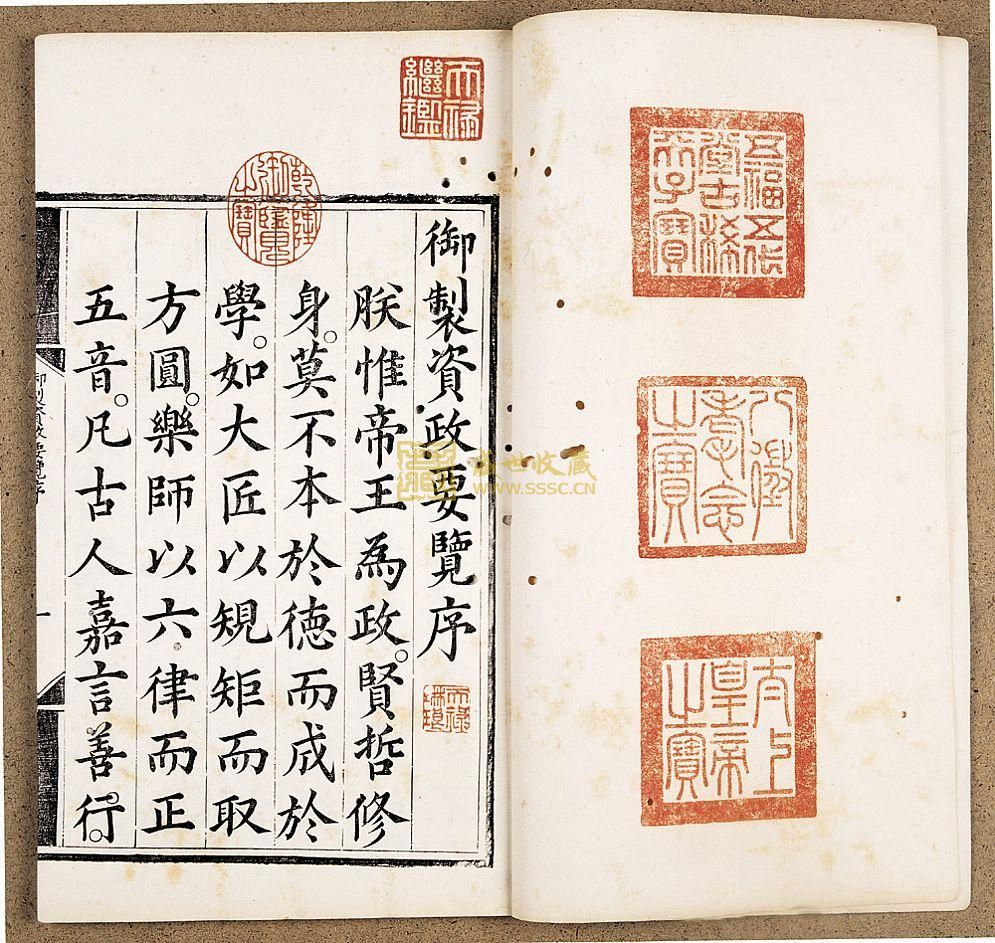 五福五代
堂古稀
天子寶
八徵
耄念
之寶
太上
皇帝
之寶
天祿
繼鑑
乾隆
御覽
之寶
御製資政要覽序
天祿
琳琅
朕惟帝王為政。賢哲修
身。莫不本於德而成於
學。如大匠以規矩而取
方圓。樂師以六律而正
五音。凡古人嘉言善行。
御製資政要覽序
一
盛世收藏
WWW.SSSC.CN